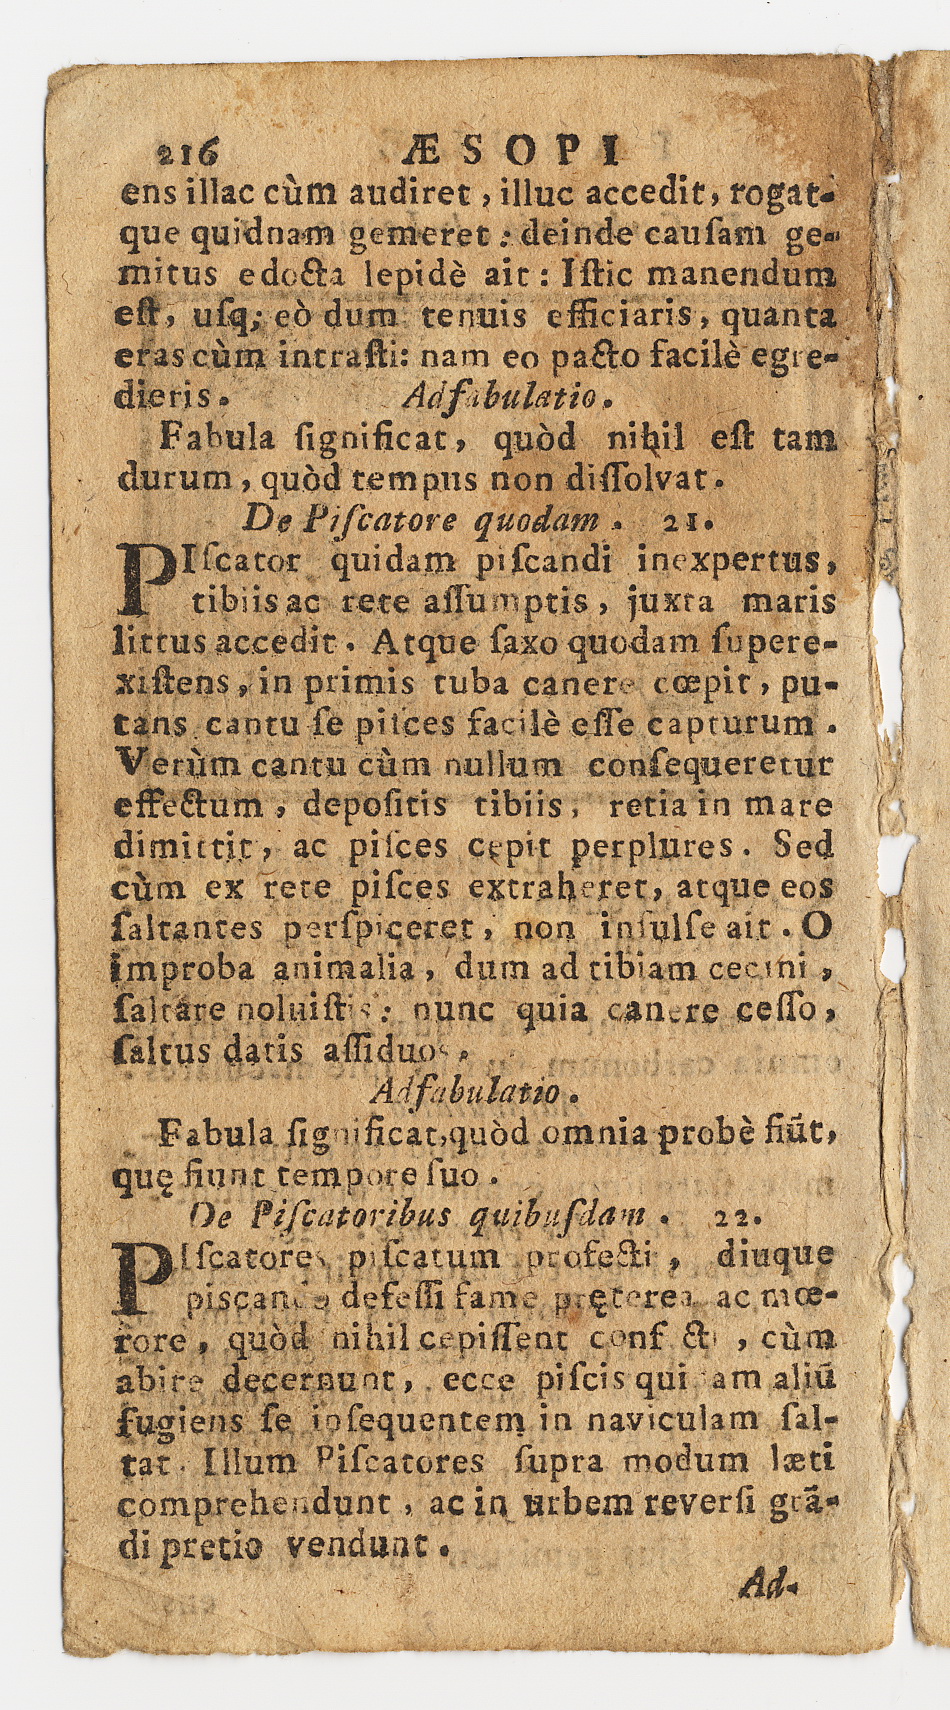 216 ÆSOPI
ens illac cùm audiret, illuc accedit, rogat-
que quidnam gemeret: deinde cauſam ge-
mitus edocta lepidè ait: Iſtic manendum
eſt, uſq; eò dum tenuis efficiaris, quanta
eras cùm intraſti: nam eo pacto facilè egre-
dieris. Adfabulatio.
Fabula ſignificat, quòd nihil eſt tam
durum, quòd tempus non diſſolvat.
De Piſcatore quodam. 21.
PIſcator quidam piſcandi inexpertus,
tibiis ac rete aſſumptis, juxta maris
littus accedit. Atque ſaxo quodam ſupere-
xiſtens, in primis tuba canere cœpit, pu-
tans cantu ſe piſces facilè eſſe capturum.
Verùm cantu cùm nullum conſequeretur
effectum, depoſitis tibiis, retia in mare
dimittit, ac piſces cepit perplures. Sed
cùm ex rete piſces extraheret, atque eos
ſaltantes perſpiceret, non inſulſe ait. O
improba animalia, dum ad tibiam cecini,
ſaltare noluiſtis: nunc quia canere ceſſo,
ſaltus datis aſſiduos.
Adfabulatio.
Fabula ſignificat, quòd omnia probè fiūt,
quę fiunt tempore ſuo.
De Piſcatoribus quibuſdam. 22.
PIſcatores piſcatum profecti, diuque
piscando defeſſi fame pręterea ac mœ-
rore, quòd nihil cepiſſent confecti, cùm
abire decernunt, ecce piſcis quidam aliū
fugiens ſe inſequentem in naviculam ſal-
tat. Illum Piſcatores ſupra modum læti
comprehendunt, ac in urbem reverſi grā-
di pretio vendunt.
Ad-